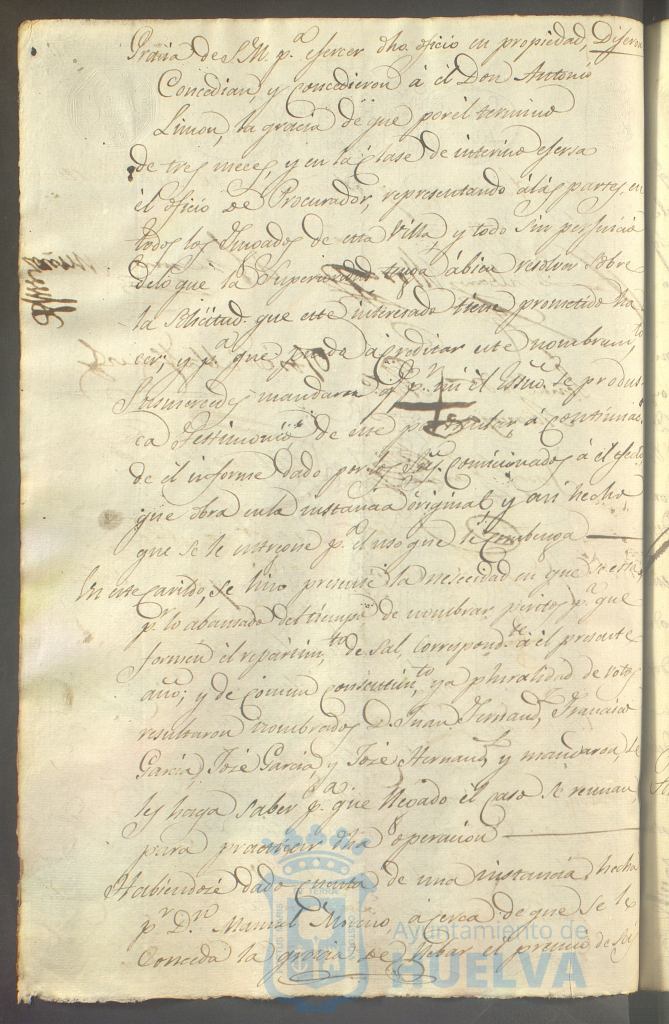 Gracia de S.M. p.ª eserser dho oficio en propiedad, Digeron
Concedian, y Concedieron á él Don Antonio
Limon, la gracia de que por él termino
de tres meces, y en la Clase de interino esersa
él oficio de Procurador, representando á lás partes en
todos los Jusgados de esta Villa, y todo sin persuicio
delo que la Superioridad tenga á bien resolver sobre
la Solicitud que este interesado tiene prometido ha
cer; y p.ª que pueda acreditar este nombram.to
Susmercedes mandaron q.e p.r mi él Ess.no se produs
ca Testimonio de este particular, á Continuac.n
de él informe dado por los Sres. Comicionados á él efecto,
que obra enla instancia original, y asi hecho
que se le entregue p.ª el uso que le Combenga
En este Cavildo, se hiso presente la nescecidad en que se está,
p.r lo abansado del tiempo de nombrar peritos p.ª que
formen él repartim.to de Sal, correspond.te á él presente
año; y de Comun Consentim.to y a pluralidad de votos
resultaron nombrados D. Juan Fernand.z Francisco
Garcia, José Garcia, y José Hernand.z y mandaron, se
les haga saber p.ª que llegado él caso se reunan,
para practicar dha operacion
Habiendose dado cuenta de una instancia hecha
p.r D.n Manuel Moreno, áserca de que se le
Conceda la gracia de llebar él premio de seis
Ayuntamiento de
HUELVA